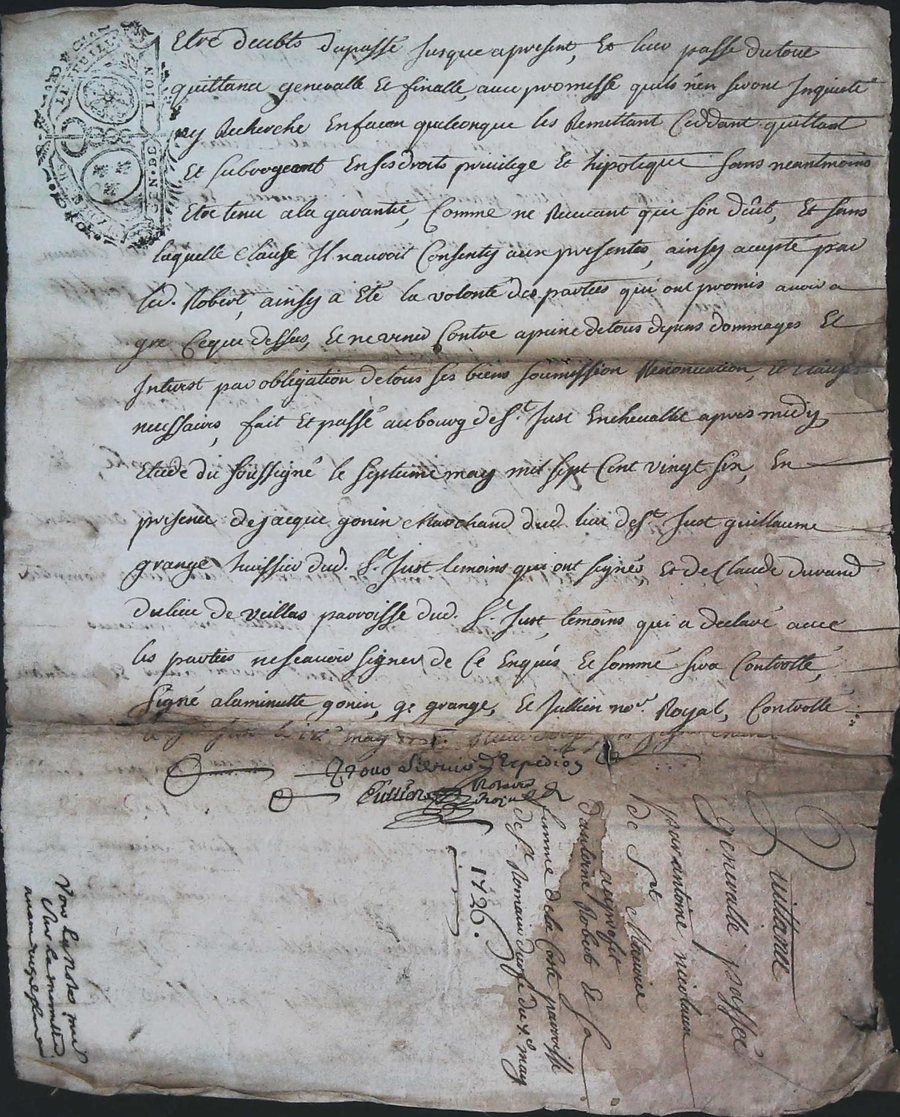 Etre deubts dupassé Jusque apresent, Et leur passe dutout
quittance generalle et finalle, avec promesse quils n'en seront Inquieté
ny Recherché Enfacon quelconque les Remettant Ceddant quittant
Et subrogeant Ensesdroits privilege Et hipoteque sans neantmoins
Etre tenu ala garantie, Comme ne Recevant que son düit, Et sans
laquelle Clause Il nauroit Consenty aux presentes, ainsy accepté par
led. Robert, ainsy a Eté la volonté des parties qui ont promis avoir a
gre Ceque dessus, Et ne venir Contre apeine detous depens dommages Et
Interest par obligation detous ses biens soumission Renonciation, Et clauses
necessaires, fait Et passé aubourg de St. Just Enchevallet apres midy
Etude du soussigné le septieme may mil sept Cent vingt six, En
presence de jacque gonin Marchand dud. lieu de St. Just guillaume
grange huissier dud. St. Just temoins qui ont signé, Et de Claude durand
du lieu de Veillas parroisse dud. St. Just, temoins qui a declaré avec
les parties nescavoir signer de Ce Enquis Et sommé sera Controllé,
Signé alaminutte gonin, ge grange, Et Jullien nore. Royal, Controllé
may
Expedion
Jullien Notaire Royal
Quittance
generalle passée
par antoine nicolaux
de St Maurice
auproffit
d'antoine Robert de la
de la Coste parroisse
de St. Romain durfé du 7e may
1726.